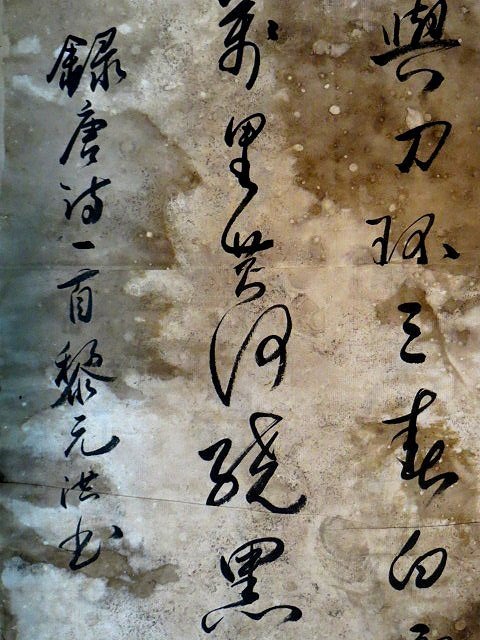 與刀環三春白
萬里黃河繞黑
錄唐詩一首黎元洪書